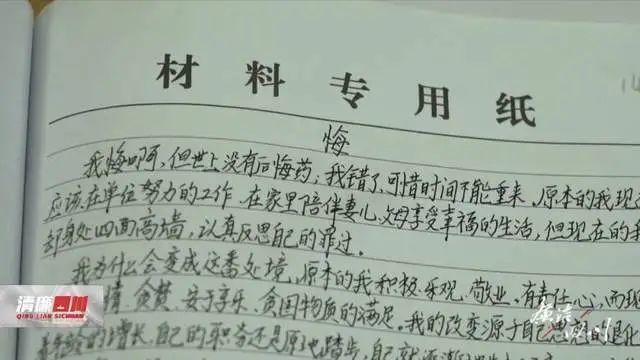 材料专用纸
悔
我悔啊,但世上没有后悔药;我错了,可惜时间不能重来。原本的我现
应该在单位努力的工作,在家里陪伴妻儿、父母享受幸福的生活,但现在的我
却身处四面高墙,认真反思自己的罪过。
我为什么会变成这番处境,原本的我积极、乐观、敬业、有责任心,而现
惰、贪婪、安于享乐、贪图物质的满足。我的改变源于自己思想的退化
增长,自己的职务还是原地踏步,自己就逐渐
清廉四川
QING LIAN SICHUAN
廉洁四川